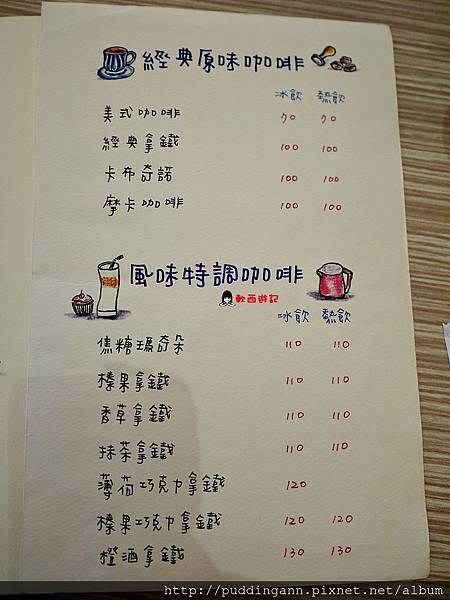 經典原味咖啡
冰飲 熱飲
美式咖啡 90 90
經典拿鐵 100 100
卡布奇諾 100 100
摩卡咖啡 100 100
風味特調咖啡
軟西遊記
冰飲 熱飲
焦糖瑪奇朵 110 110
榛果拿鐵 110 110
香草拿鐵 110 110
抹茶拿鐵 110 110
薄荷巧克力拿鐵 120
榛果巧克力拿鐵 120 120
橙酒拿鐵 130 130
http://puddingann.pixnet.net/album